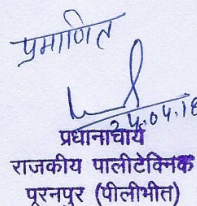 प्रमाणित
24.04.18
प्रधानाचार्य
राजकीय पालीटेक्निक
पूरनपुर (पीलीभीत)